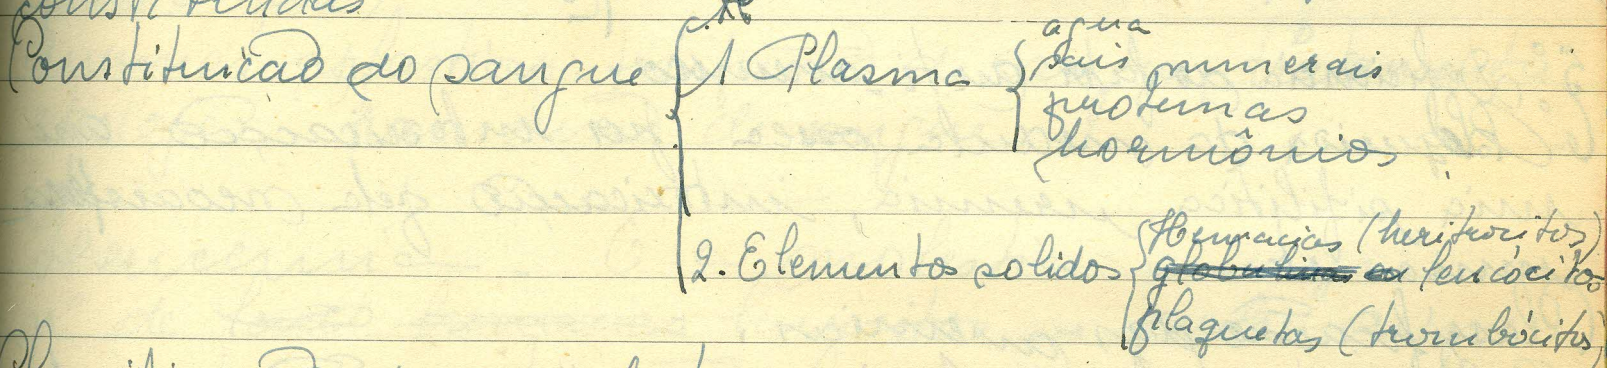 Constituição do sangue
1 Plasma
agua
sais minerais
proteinas
hormônios
2. Elementos solidos
Hemacias (heritrocitos)
globulinas ou leucócitos
plaquetas (trombócitos)